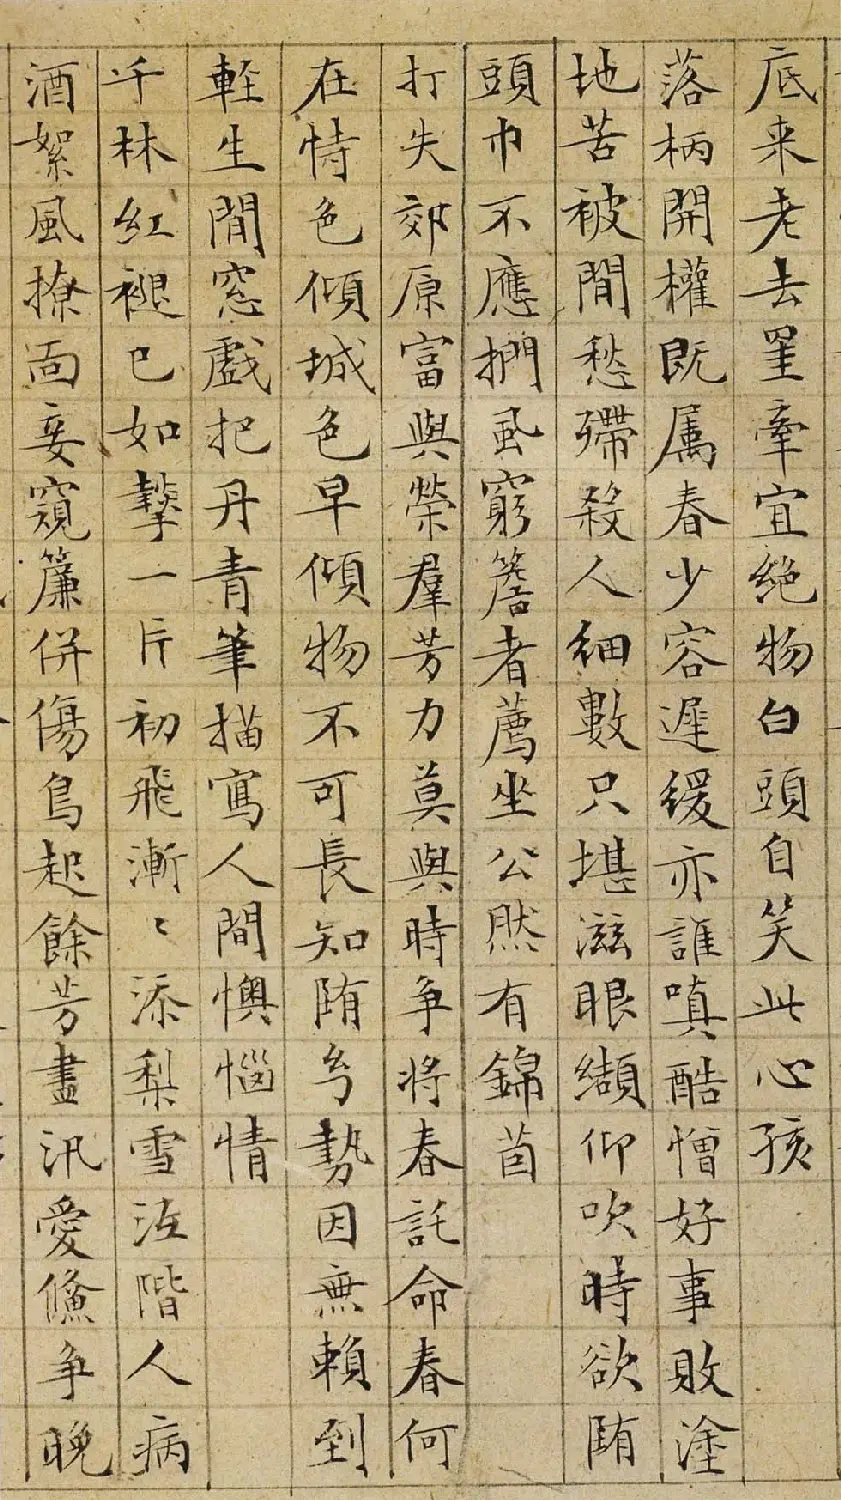 底来老去罣牽宜絶物白頭自笑此心孩
落柄開權既属春少容遲緩亦誰嗔酷憎好事敗塗
地苦被閒愁殢殺人細數只堪滋眼纈仰吹時欲陏
頭巾不應捫虱窮簷者薦坐公然有錦茵
打失郊原富與榮羣芳力莫與時争將春託命春何
在恃色傾城色早傾物不可長知陏𠃵勢因無賴到
輕生閒窓戲把丹青筆描寫人間懊惱情
千林紅褪已如摯一片初飛漸〻添梨雪沍階人病
酒絮風撩面妾窺簾併傷鳥起餘芳盡汛愛鯈争晚